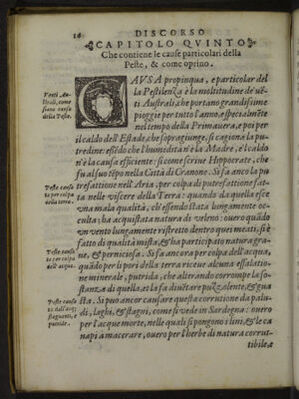 16
DISCORSO
CAPITOLO QVINTO
Che contiene le cause particolari della
Peste, & come oprino.
CAVSA propinqua, e particolar del
la Pestilenza è la moltitudine de' uē
ti Australi, che portano grandissime
pioggie per tutto l'anno, e specialmēte
nel tempo della Primauera, e poi per
il caldo dell'Estade, che sopragiunge, si cagiona la pu
tredine: essēdo che l'humedità n'è la Madre, e'l caldo
n'è la causa efficiente: si come scriue Hippocrate, che
fu al suo tēpo nella Città di Cranone. Si fa anco la pu
trefattione nell'Aria, per colpa di putrefattione fat-
ta nelle viscere della Terra: quando da quella esce
vna mala qualità, ch'essendo stata lungamente oc-
culta; ha acquistata natura di veleno: ouero quādo
vn vento lungamente ristretto dentro quei meati, si è
fatto di qualità mista, & ha participato natura gra-
ue, & perniciosa. Si fa ancora per colpa dell'acqua,
quādo per li pori della terra riceue alcuna essalatio-
ne minerale, putrida, che alterando corrompe la so-
stanza di quella, et la fa diuētare puzzolente, & gua
sta. Si può ancor causare questa corrutione da palu-
di, laghi, & stagni, come si vede in Sardegna: ouero
per l'acque morte, nelle quali si pongono i lini, & le ca
napi a macerare, ouero per l'herbe di natura corrut-
tibile, &
Venti Au-
strali, come
siano causa
della Peste.
Peste causa
ta per colpa
della terra.
Peste causa
ta per colpa
dell'acqua.
Peste causa
ta dall'acq;
stagnanti, e
putride.